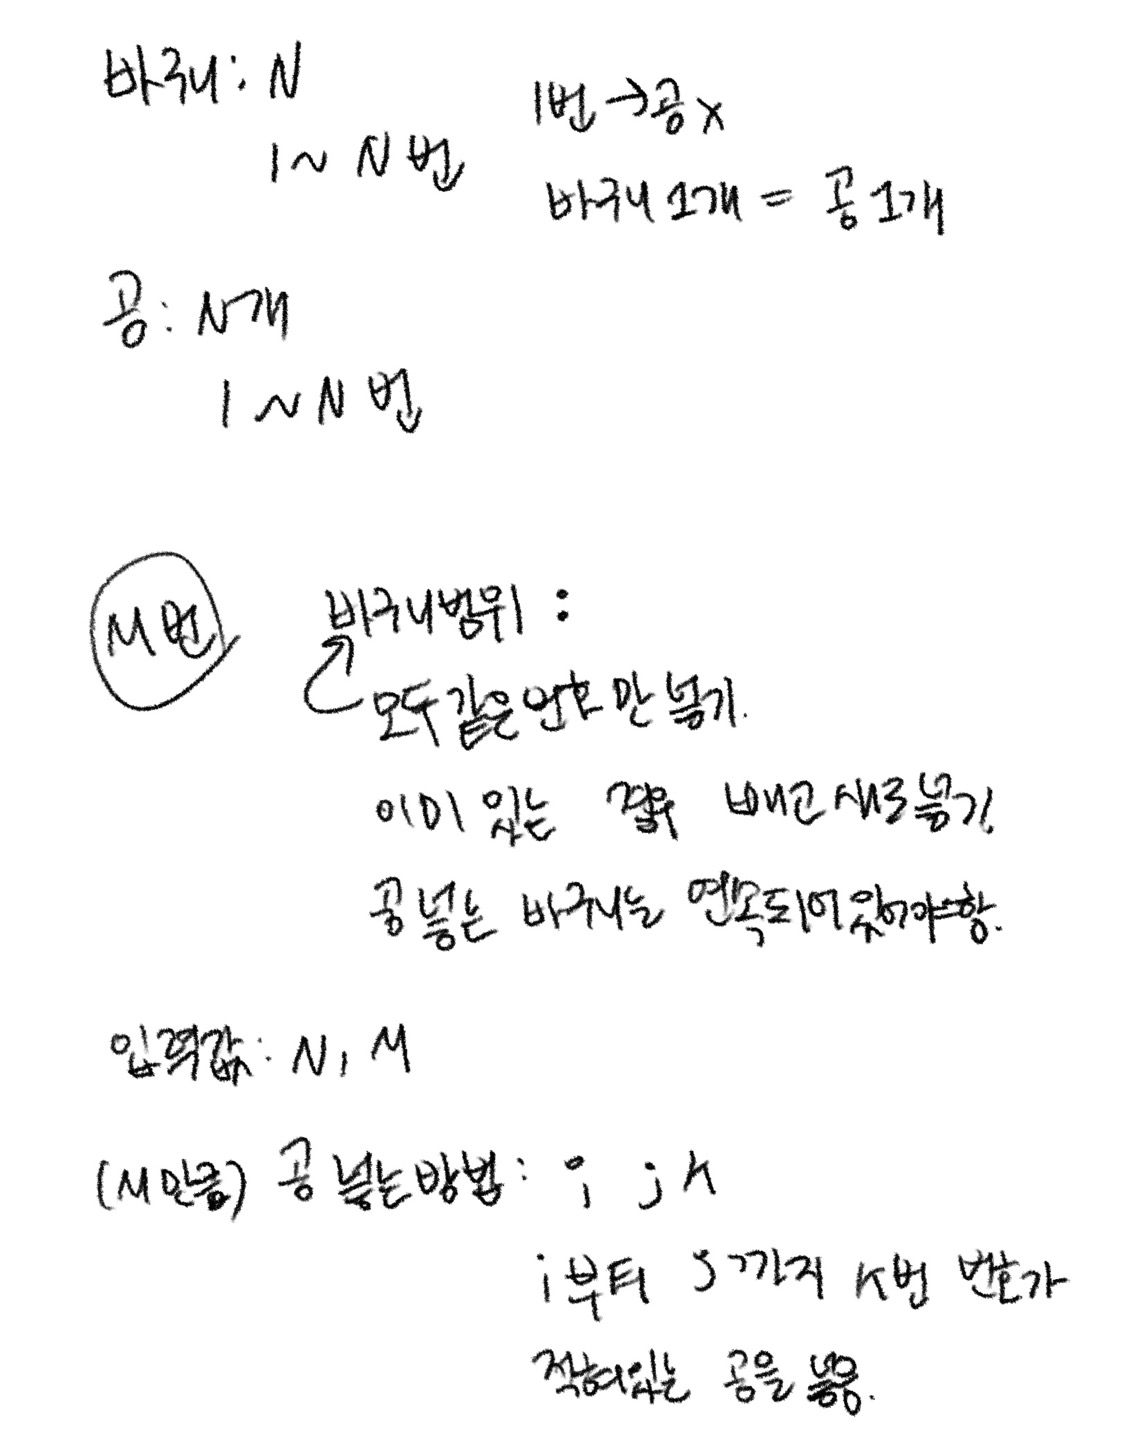 바구니: N
1~N번
1번→공x
바구니 1개 = 공 1개
공: N개
1~N번
M번
바구니 범위 :
모두 같은 번호만 넣기.
이미 있는 경우 빼고 새로 넣기.
공 넣는 바구니는 연속되어 있어야함.
입력값: N, M
(M만큼) 공 넣는 방법: i j k
i부터 j까지 k번 번호가
적혀있는 공을 넣음.